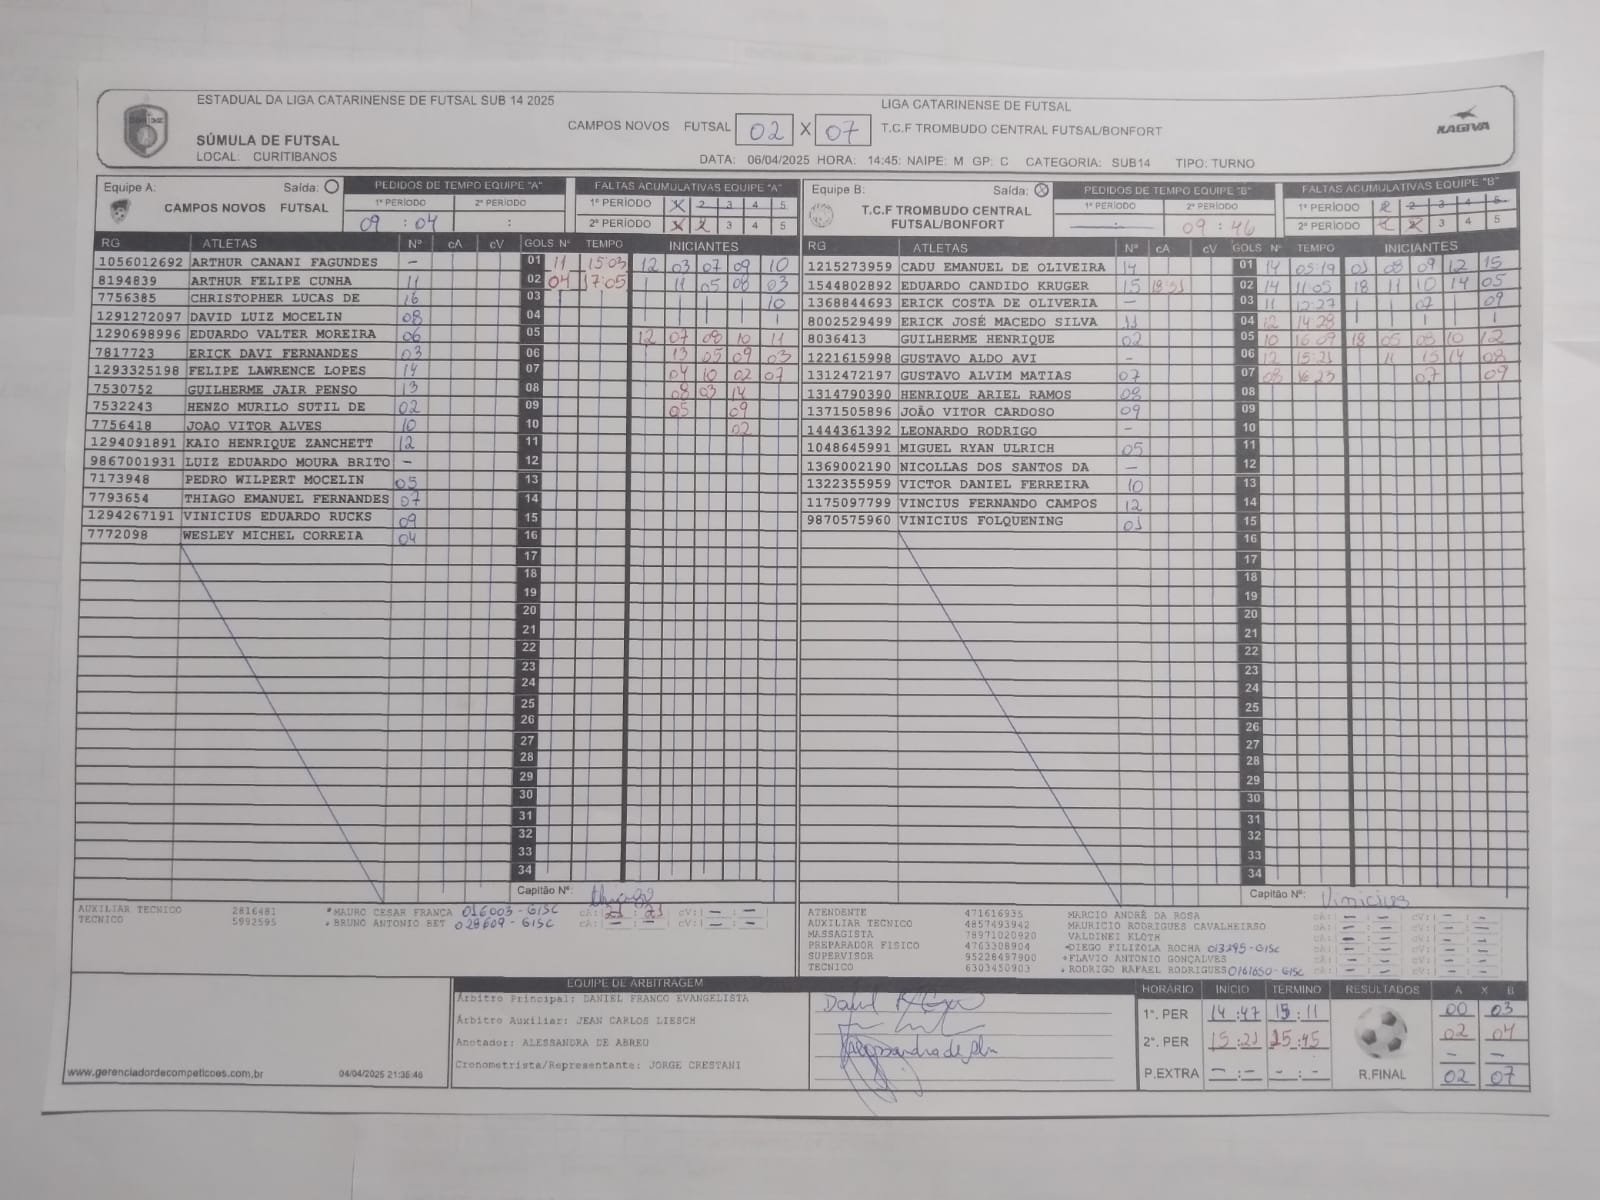 ESTADUAL DA LIGA CATARINENSE DE FUTSAL SUB 14 2025
LIGA CATARINENSE DE FUTSAL
KAGIVA
CAMPOS NOVOS FUTSAL 02 X 07 T.C.F TROMBUDO CENTRAL FUTSAL/BONFORT
SÚMULA DE FUTSAL
LOCAL: CURITIBANOS
DATA: 06/04/2025 HORA: 14:45: NAIPE: M GP: C CATEGORIA: SUB14 TIPO: TURNO
Equipe A: Saída:
CAMPOS NOVOS FUTSAL
PEDIDOS DE TEMPO EQUIPE "A"
1º PERÍODO 2º PERÍODO
09 : 04 :
FALTAS ACUMULATIVAS EQUIPE "A"
1º PERÍODO X 2 3 4 5
2º PERÍODO X 2 3 4 5
RG ATLETAS Nº cA cV GOLS Nº TEMPO INICIANTES
1056012692 ARTHUR CANANI FAGUNDES – 01 11 15:03 12 03 07 09 10
8194839 ARTHUR FELIPE CUNHA 11 02 04 17:05 | 11 05 08 03
7756385 CHRISTOPHER LUCAS DE 16 03 10
1291272097 DAVID LUIZ MOCELIN 08 04
1290698996 EDUARDO VALTER MOREIRA 06 05 12 07 08 10 11
7817723 ERICK DAVI FERNANDES 03 06 13 05 09 03
1293325198 FELIPE LAWRENCE LOPES 14 07 04 10 02 07
7530752 GUILHERME JAIR PENSO 13 08 08 03 14
7532243 HENZO MURILO SUTIL DE 02 09 05 09
7756418 JOAO VITOR ALVES 10 10 02
1294091891 KAIO HENRIQUE ZANCHETT 12 11
9867001931 LUIZ EDUARDO MOURA BRITO – 12
7173948 PEDRO WILPERT MOCELIN 05 13
7793654 THIAGO EMANUEL FERNANDES 07 14
1294267191 VINICIUS EDUARDO RUCKS 09 15
7772098 WESLEY MICHEL CORREIA 04 16
17
18
19
20
21
22
23
24
25
26
27
28
29
30
31
32
33
34
Capitão Nº:
AUXILIAR TECNICO 2816481 *MAURO CESAR FRANÇA 016003-G/SC cA: 21 : 21 cV: – : –
TECNICO 5992595 + BRUNO ANTONIO BET 029609-G/SC cA: – : – cV: – : –
Equipe B: Saída: X
T.C.F TROMBUDO CENTRAL
FUTSAL/BONFORT
PEDIDOS DE TEMPO EQUIPE "B"
1º PERÍODO 2º PERÍODO
: 09 : 46
FALTAS ACUMULATIVAS EQUIPE "B"
1º PERÍODO 2 3 4 5
2º PERÍODO 3 4 5
RG ATLETAS Nº cA cV GOLS Nº TEMPO INICIANTES
1215273959 CADU EMANUEL DE OLIVEIRA 14 01 14 05:19 01 08 09 12 15
1544802892 EDUARDO CANDIDO KRUGER 15 18:51 02 14 11:05 18 11 10 14 05
1368844693 ERICK COSTA DE OLIVERIA – 03 11 12:27 07 09
8002529499 ERICK JOSÉ MACEDO SILVA 11 04 12 14:28
8036413 GUILHERME HENRIQUE 02 05 10 16:09 18 05 03 10 12
1221615998 GUSTAVO ALDO AVI – 06 12 15:21 11 15 14 08
1312472197 GUSTAVO ALVIM MATIAS 07 07 08 16:23 07 09
1314790390 HENRIQUE ARIEL RAMOS 08 08
1371505896 JOÃO VITOR CARDOSO 09 09
1444361392 LEONARDO RODRIGO – 10
1048645991 MIGUEL RYAN ULRICH 05 11
1369002190 NICOLLAS DOS SANTOS DA – 12
1322355959 VICTOR DANIEL FERREIRA 10 13
1175097799 VINCIUS FERNANDO CAMPOS 12 14
9870575960 VINICIUS FOLQUENING 01 15
16
17
18
19
20
21
22
23
24
25
26
27
28
29
30
31
32
33
34
Capitão Nº: Vinicius
ATENDENTE 471616935 MARCIO ANDRÉ DA ROSA cA: – : – cV: – : –
AUXILIAR TECNICO 4857493942 MAURICIO RODRIGUES CAVALHEIRSO cA: – : – cV: – : –
MASSAGISTA 78971020920 VALDINEI KLOTH cA: – : – cV: – : –
PREPARADOR FISICO 4763308904 +DIEGO FILIZOLA ROCHA 013295-G/SC cA: – : – cV: – : –
SUPERVISOR 95228497900 +FLAVIO ANTONIO GONÇALVES cA: – : – cV: – : –
TECNICO 6303450903 + RODRIGO RAFAEL RODRIGUES 0161650-G/SC cA: – : – cV: – : –
EQUIPE DE ARBITRAGEM
Árbitro Principal: DANIEL FRANCO EVANGELISTA
Árbitro Auxiliar: JEAN CARLOS LIESCH
Anotador: ALESSANDRA DE ABREU
Cronometrista/Representante: JORGE CRESTANI
HORÁRIO INÍCIO TÉRMINO RESULTADOS A X B
1º. PER 14:47 15:11 00 03
2º. PER 15:21 15:45 02 04
P.EXTRA – : – – : – – –
R.FINAL 02 07
www.gerenciadordecompeticoes.com.br
04/04/2025 21:35:46